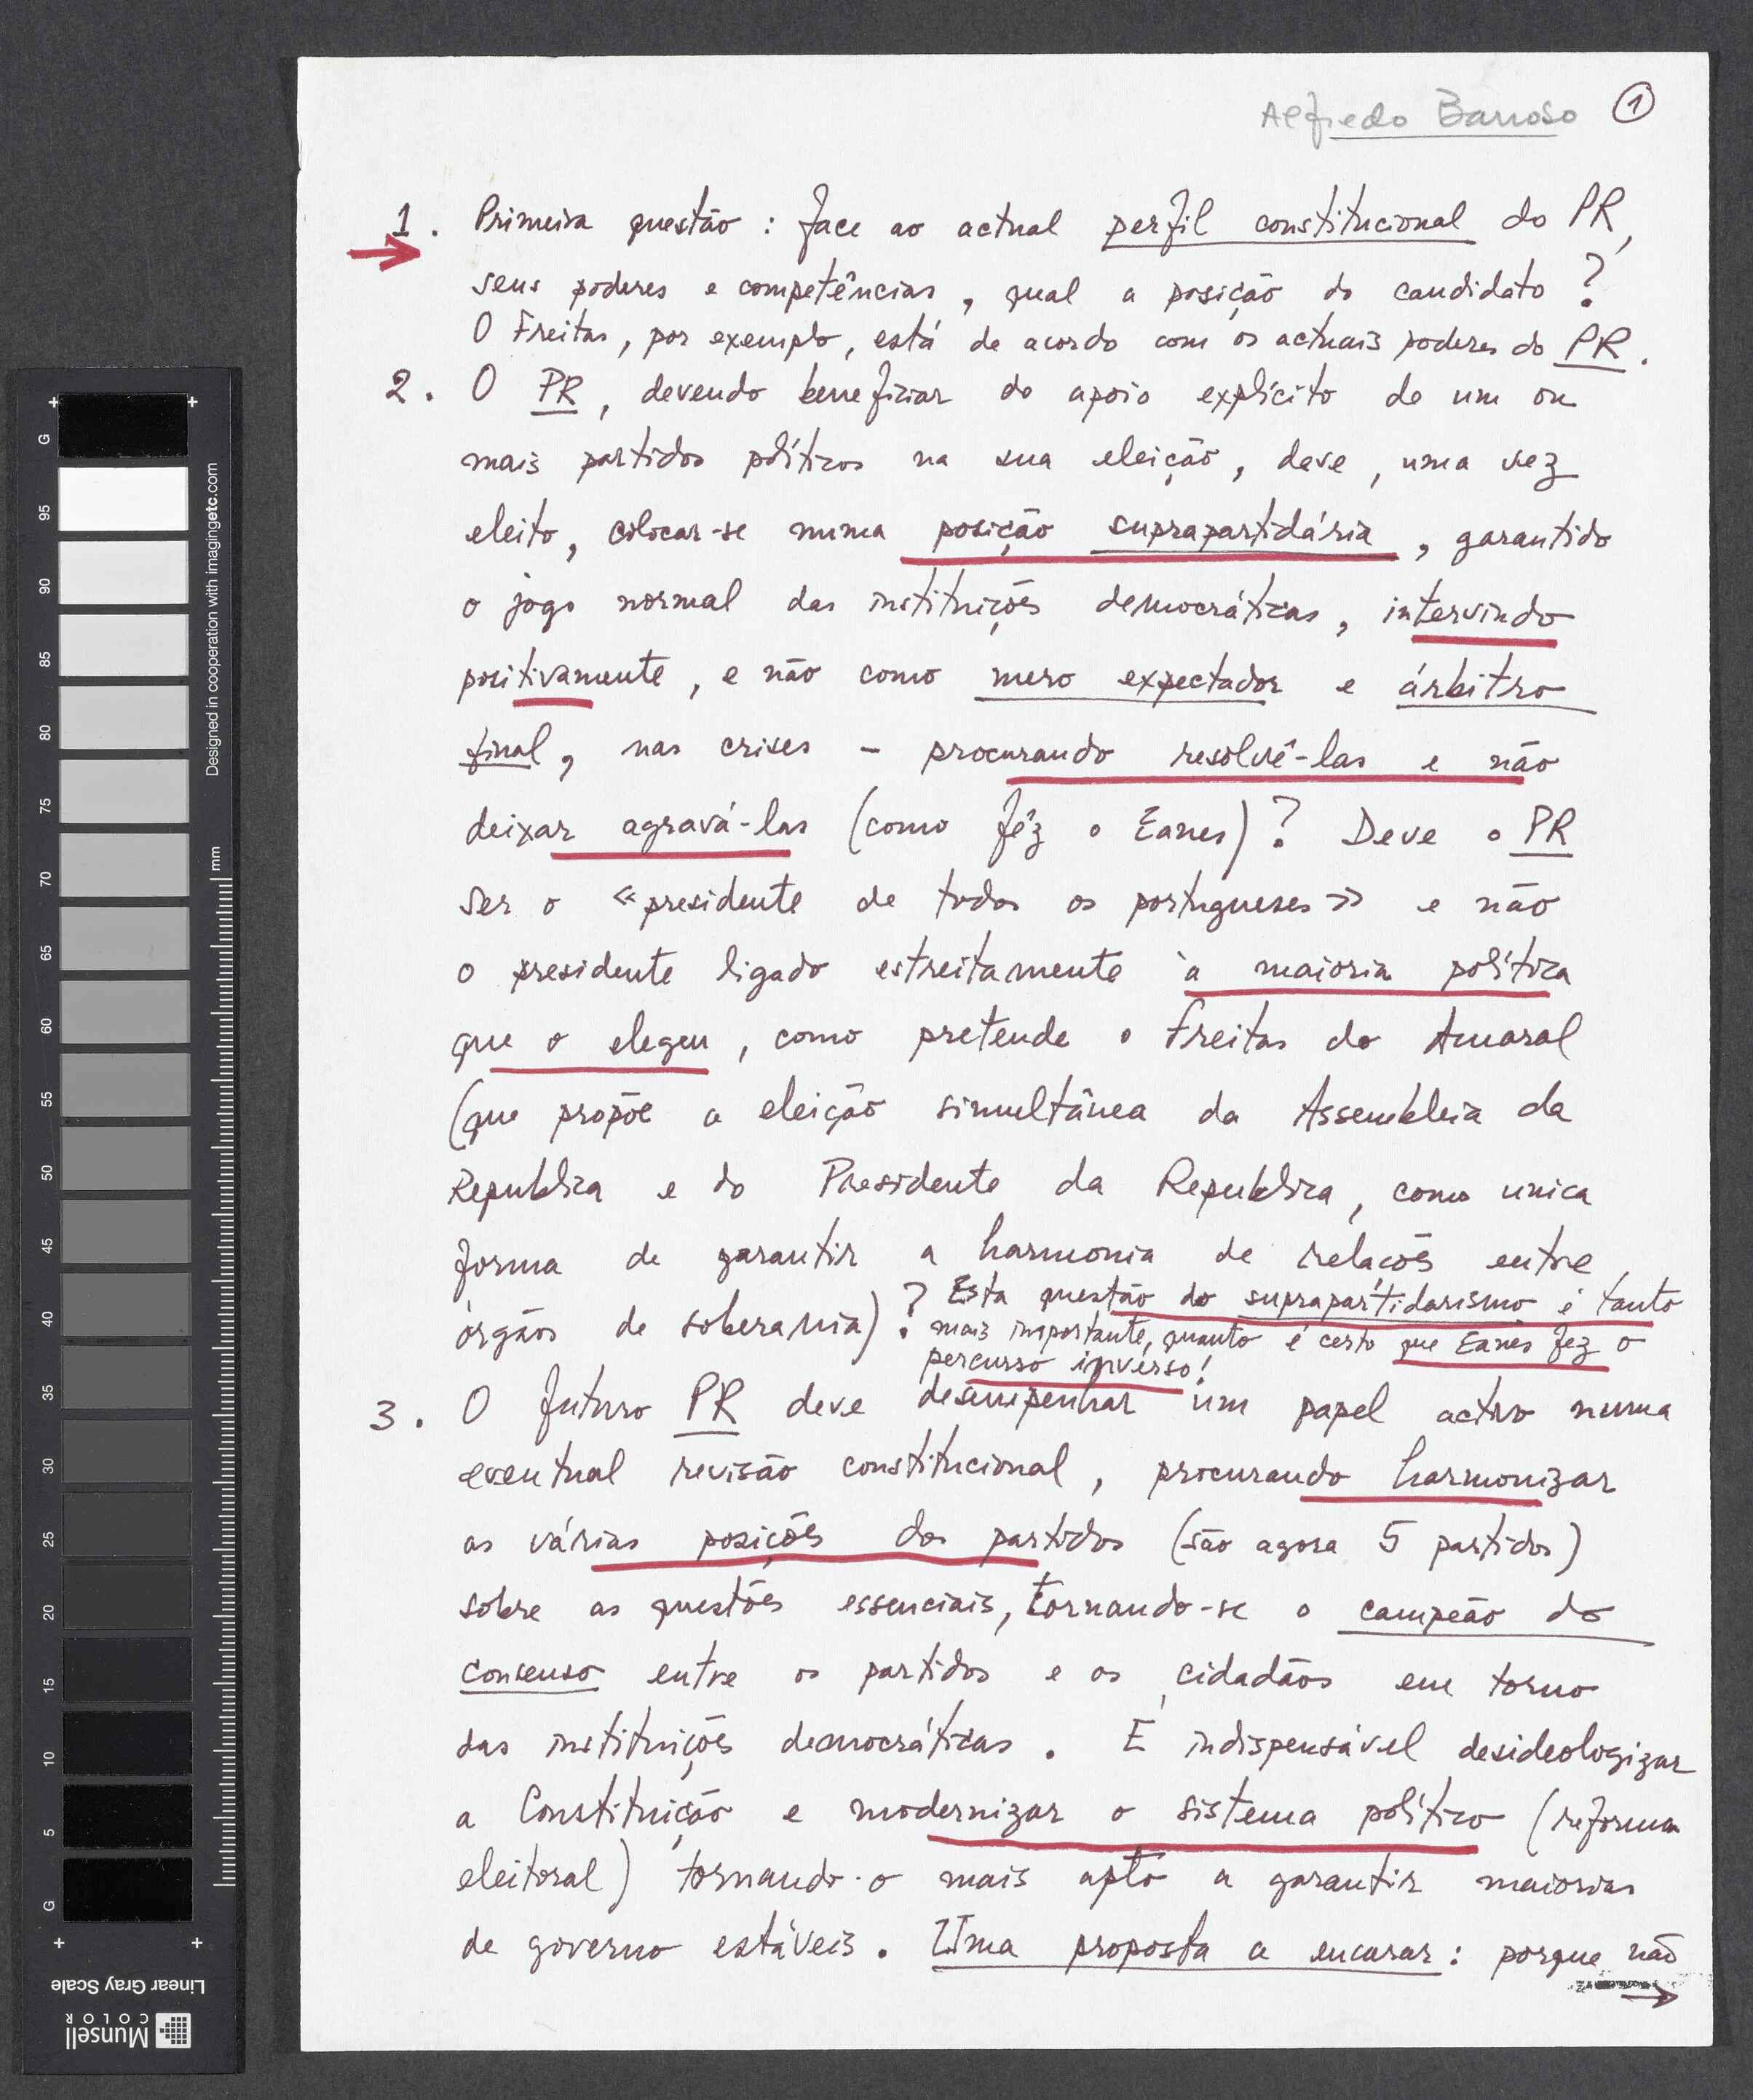 Alfredo Barroso 1
1. Primeira questão : face ao actual perfil constitucional do PR,
seus poderes e competências, qual a posição do candidato ?
O Freitas, por exemplo, está de acordo com os actuais poderes do PR.
2. O PR, devendo beneficiar do apoio explícito de um ou
mais partidos políticos na sua eleição, deve, uma vez
eleito, colocar-se numa posição suprapartidária, garantido
o jogo normal das instituições democráticas, intervindo
positivamente, e não como mero expectador e árbitro
final, nas crises – procurando resolvê-las e não
deixar agravá-las (como fêz o Eanes)? Deve o PR
ser o «presidente de todos os portugueses» e não
o presidente ligado estreitamente à maioria política
que o elegeu, como pretende o Freitas do Amaral
(que propõe a eleição simultânea da Assembleia da
Republica e do Presidente da Republica, como unica
forma de garantir a harmonia de relacões entre
órgãos de soberania)? Esta questão do suprapartidarismo é tanto
mais importante, quanto é certo que Eanes fez o
percurso inverso!
3. O futuro PR deve desempenhar um papel activo numa
eventual revisão constitucional, procurando harmonizar
as várias posições dos partidos (são agora 5 partidos)
sobre as questões essenciais, tornando-se o campeão do
consenso entre os partidos e os cidadãos em torno
das instituições democráticas. E indispensável desideologizar
a Constituição e modernizar o sistema político (reforma
eleitoral) tornando-o mais apto a garantir maiorias
de governo estáveis. Uma proposta a encarar: porque não
→
G
95
90
85
80
75
70
65
60
55
50
45
40
35
30
25
20
15
10
5
G
mm
Designed in cooperation with imagingetc.com
Linear Gray Scale
Munsell
COLOR